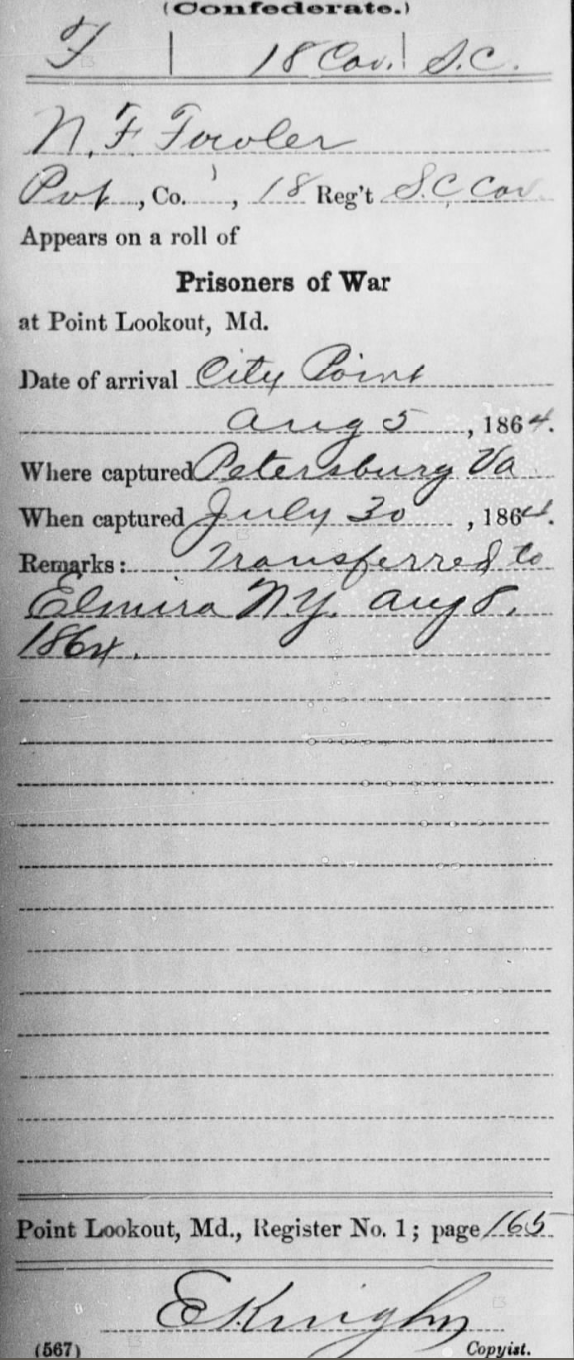 (Confederate.)
F | 18 Cav. | S.C.
N. F. Fowler
Pvt, Co. , 18 Reg't S.C. Cav
Appears on a roll of
Prisoners of War
at Point Lookout, Md.
Date of arrival City Point
Aug 5, 1864.
Where captured Petersburg Va
When captured July 30, 1864.
Remarks: Transferred to
Elmira N.Y. Aug 8.
1864.
Point Lookout, Md., Register No. 1; page 165
(567) Copyist.